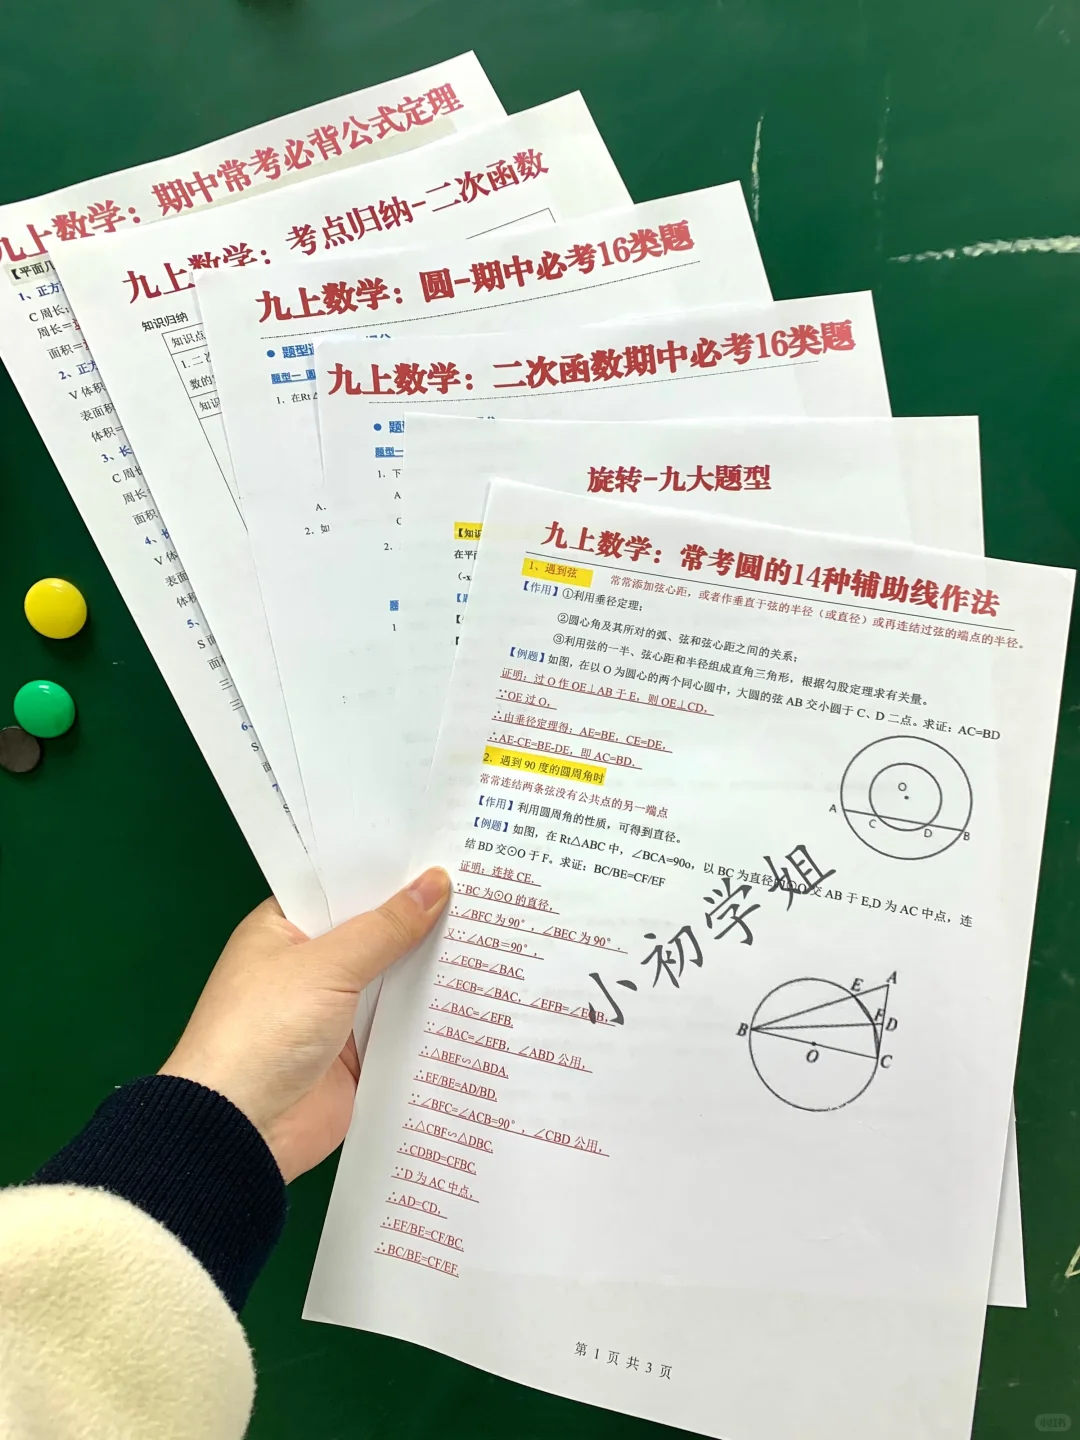 九上数学：期中常考必背公式定理
【平面几
1、正方
C 周长：
周长=
面积=
2、正方
V 体积
表面积
体积=
3、长
C 周长
周长=
面积
4、长
V 体
表面
体积
5、
S 面
面
三
三
6、
S
面
7
S
九上数学：考点归纳-二次函数
知识归纳
知识点
1.二次
数的
知识
九上数学：圆-期中必考16类题
题型
题型一 圆
1．在Rt△
A.
2．如
九上数学：二次函数期中必考16类题
题
题型一
1．下
A
C
2．
题
1
旋转-九大题型
【知识
在平
（-x
九上数学：常考圆的14种辅助线作法
1、遇到弦
常常添加弦心距，或者作垂直于弦的半径（或直径）或再连结过弦的端点的半径。
【作用】①利用垂径定理；
②圆心角及其所对的弧、弦和弦心距之间的关系；
③利用弦的一半、弦心距和半径组成直角三角形，根据勾股定理求有关量。
【例题】如图，在以 O 为圆心的两个同心圆中，大圆的弦 AB 交小圆于 C、D 二点。求证：AC=BD
证明：过 O 作 OE⊥AB 于 E，则 OE⊥CD，
∵OE 过 O，
∴由垂径定理得：AE=BE，CE=DE，
∴AE-CE=BE-DE，即 AC=BD．
O
A
C
D
B
2．遇到 90 度的圆周角时
常常连结两条弦没有公共点的另一端点
【作用】利用圆周角的性质，可得到直径。
【例题】如图，在 Rt△ABC 中，∠BCA=90o，以 BC 为直径的⊙O 交 AB 于 E,D 为 AC 中点，连
结 BD 交⊙O 于 F。求证：BC/BE=CF/EF
证明：连接 CE，
∵BC 为⊙O 的直径，
∴∠BFC 为 90°，∠BEC 为 90°．
又∵∠ACB=90°，
∴∠ECB=∠BAC.
∵∠ECB=∠BAC，∠EFB=∠ECB，
∴∠BAC=∠EFB.
∵∠BAC=∠EFB，∠ABD 公用，
∴△BEF∽△BDA.
∴EF/BE=AD/BD.
∵∠BFC=∠ACB=90°，∠CBD 公用，
∴△CBF∽△DBC.
∴CDBD=CFBC.
∵D 为 AC 中点，
∴AD=CD，
∴EF/BE=CF/BC.
∴BC/BE=CF/EF.
A
E
F
B
D
O
C
小初学姐
第 1 页 共 3 页
小红书